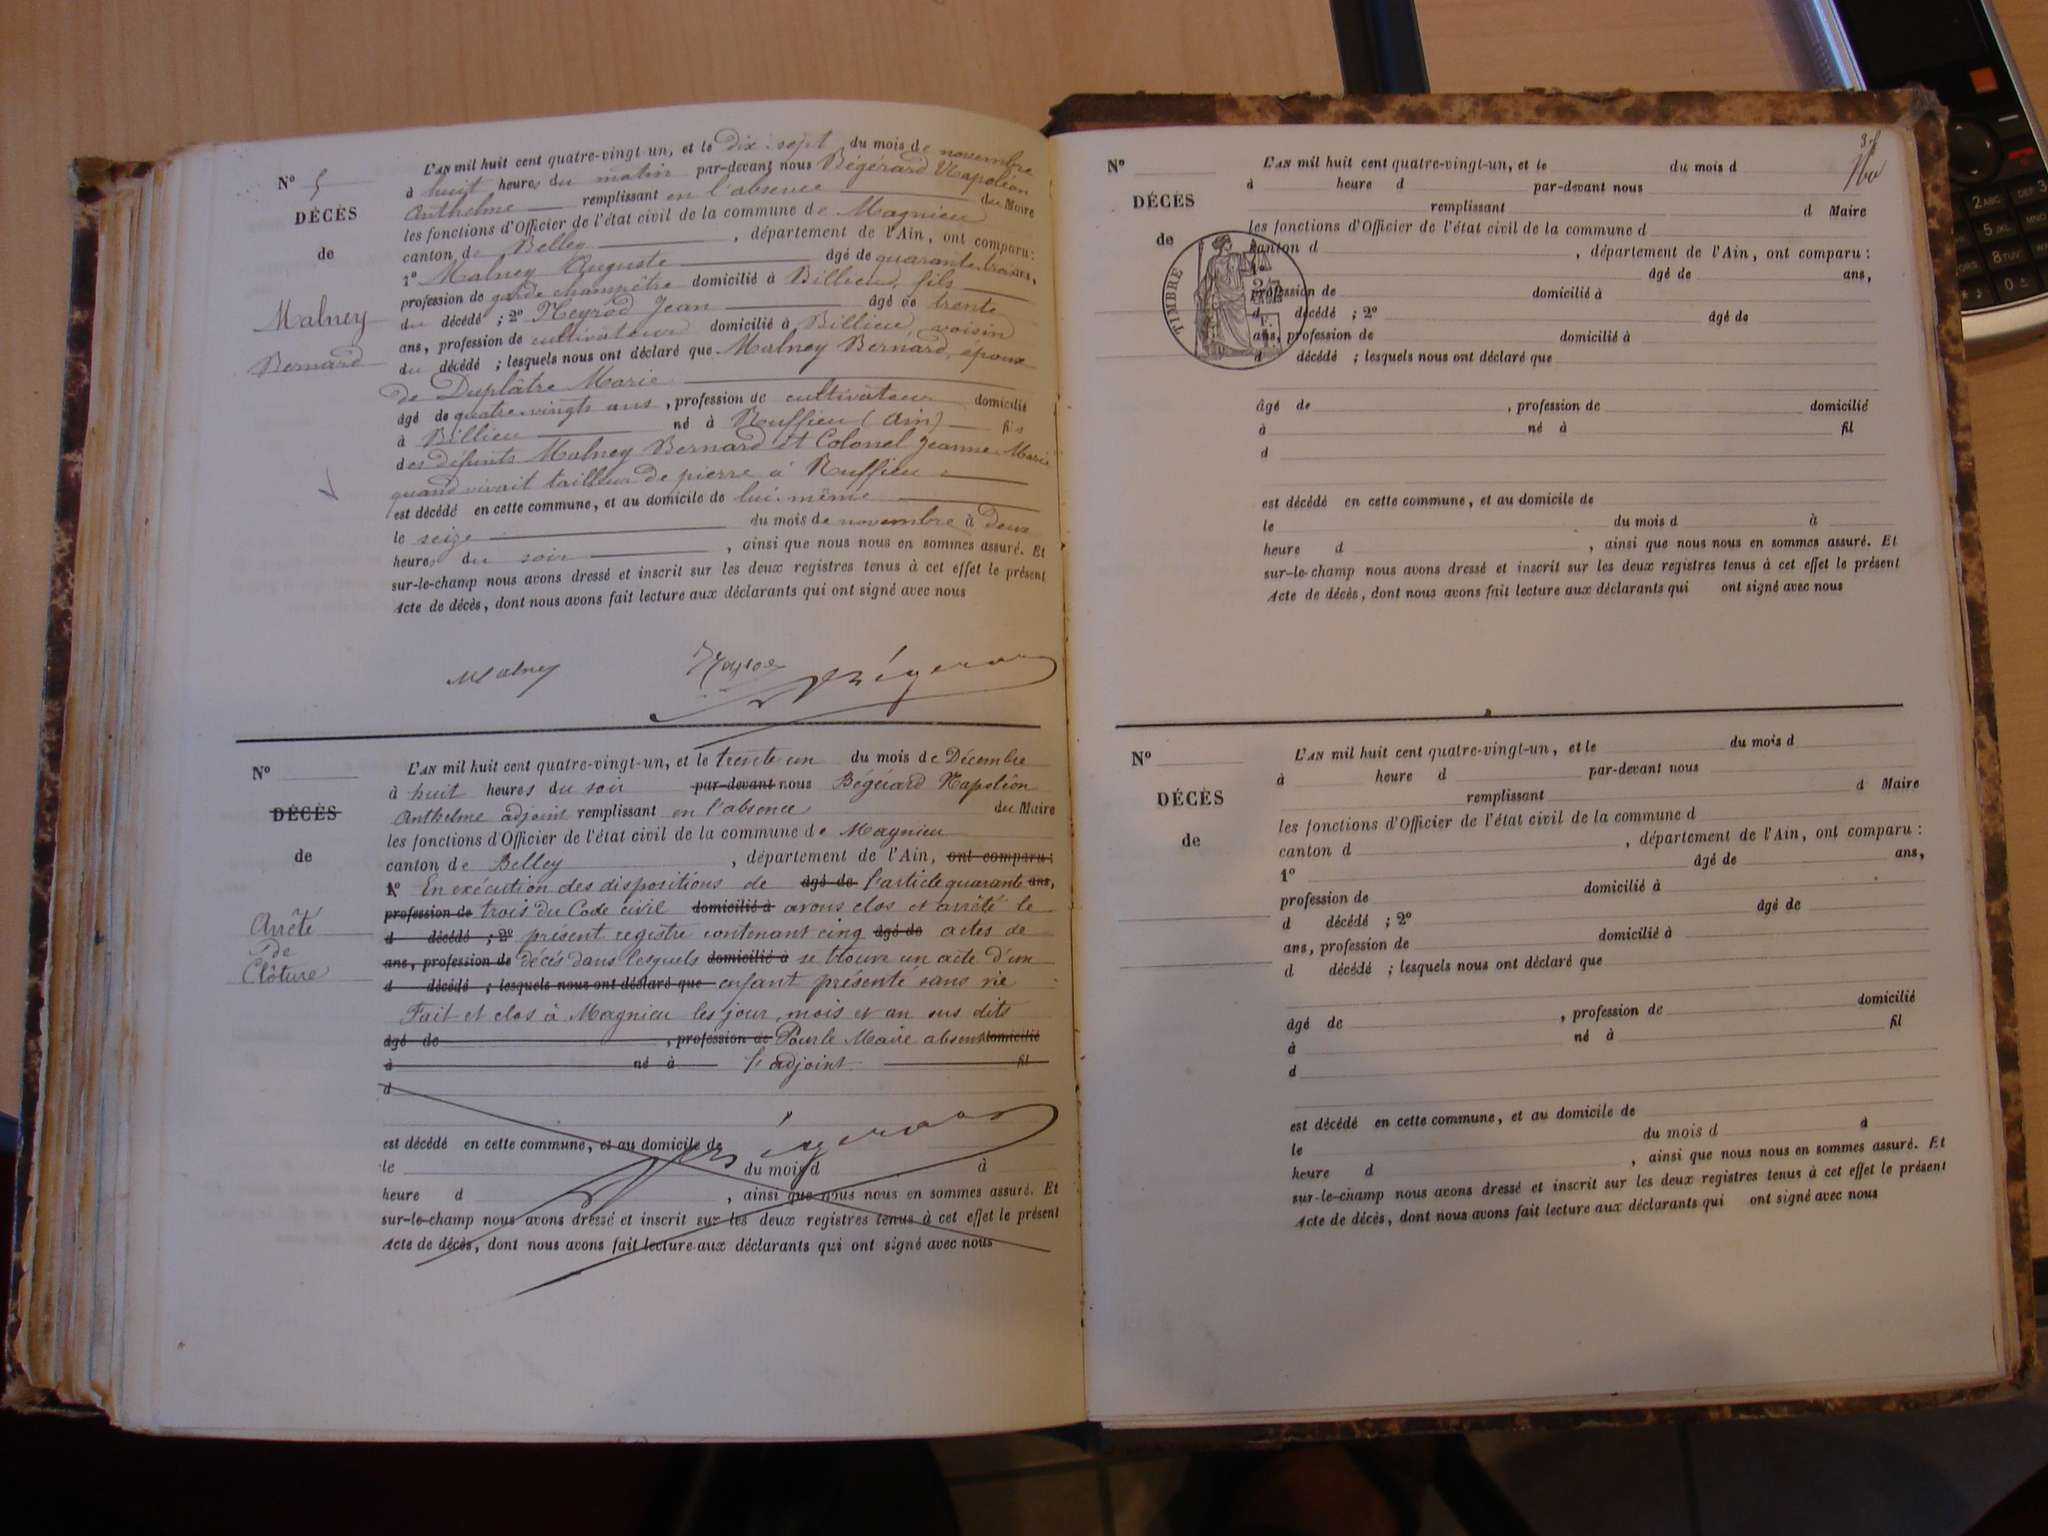 N° 5
DÉCÈS
de
Malney
Bernard
L'AN mil huit cent quatre-vingt-un, et le dix-sept du mois de novembre
à huit heures du matin par-devant nous Bégérard Napoléon
Anthelme remplissant en l'absence du Maire
les fonctions d'Officier de l'état civil de la commune de Magnieu
canton de Belley, département de l'Ain, ont comparu :
1° Malney Auguste âgé de quarante-trois ans,
profession de garde champêtre domicilié à Billieu, fils
du décédé ; 2° Neyrod Jean âgé de trente
ans, profession de cultivateur domicilié à Billieu, voisin
du décédé ; lesquels nous ont déclaré que Malney Bernard, époux
de Duplâtre Marie
âgé de quatre-vingts ans, profession de cultivateur domicilié
à Billieu né à Ruffieu (Ain) fils
des défunts Malney Bernard et Colonel Jeanne Marie
quand vivait tailleur de pierre à Ruffieu
est décédé en cette commune, et au domicile de lui-même
le seize du mois de novembre à deux
heures du soir, ainsi que nous nous en sommes assuré. Et
sur-le-champ nous avons dressé et inscrit sur les deux registres tenus à cet effet le présent
Acte de décès, dont nous avons fait lecture aux déclarants qui ont signé avec nous
Malney
N°
DÉCÈS
de
Arrêté
de
Clôture
L'AN mil huit cent quatre-vingt-un, et le trente un du mois de Décembre
à huit heures du soir par-devant nous Bégérard Napoléon
Anthelme adjoint remplissant en l'absence du Maire
les fonctions d'Officier de l'état civil de la commune de Magnieu
canton de Belley, département de l'Ain, ont comparu :
1° En exécution des dispositions de âgé de l'article quarante ans,
profession de trois du Code civil domicilié à avons clos et arrêté le
d décédé ; 2° présent registre contenant cinq âgé de actes de
ans, profession de décès dans lesquels domicilié à se trouve un acte d'un
d décédé ; lesquels nous ont déclaré que enfant présenté sans vie
Fait et clos à Magnieu les jour, mois et an sus dits
âgé de , profession de Pour le Maire absent domicilié
à né à l'adjoint fil
d
est décédé en cette commune, et au domicile de
le du mois d à
heure d , ainsi que nous nous en sommes assuré. Et
sur-le-champ nous avons dressé et inscrit sur les deux registres tenus à cet effet le présent
Acte de décès, dont nous avons fait lecture aux déclarants qui ont signé avec nous
N°
DÉCÈS
de
TIMBRE
L'AN mil huit cent quatre-vingt-un, et le du mois d
à heure d par-devant nous
remplissant d Maire
les fonctions d'Officier de l'état civil de la commune d
canton d , département de l'Ain, ont comparu :
1° âgé de ans,
profession de domicilié à
d décédé ; 2° âgé de
ans, profession de domicilié à
d décédé ; lesquels nous ont déclaré que
âgé de , profession de domicilié
à né à fil
d
est décédé en cette commune, et au domicile de
le du mois d à
heure d , ainsi que nous nous en sommes assuré. Et
sur-le-champ nous avons dressé et inscrit sur les deux registres tenus à cet effet le présent
Acte de décès, dont nous avons fait lecture aux déclarants qui ont signé avec nous
N°
DÉCÈS
de
L'AN mil huit cent quatre-vingt-un, et le du mois d
à heure d par-devant nous
remplissant d Maire
les fonctions d'Officier de l'état civil de la commune d
canton d , département de l'Ain, ont comparu :
1° âgé de ans,
profession de domicilié à
d décédé ; 2° âgé de
ans, profession de domicilié à
d décédé ; lesquels nous ont déclaré que
âgé de , profession de domicilié
à né à fil
d
est décédé en cette commune, et au domicile de
le du mois d à
heure d , ainsi que nous nous en sommes assuré. Et
sur-le-champ nous avons dressé et inscrit sur les deux registres tenus à cet effet le présent
Acte de décès, dont nous avons fait lecture aux déclarants qui ont signé avec nous